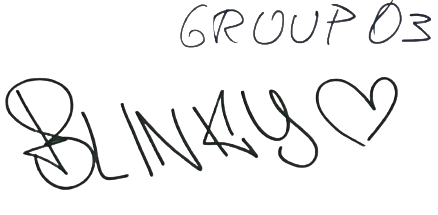 GROUP 03
BLINKY♡